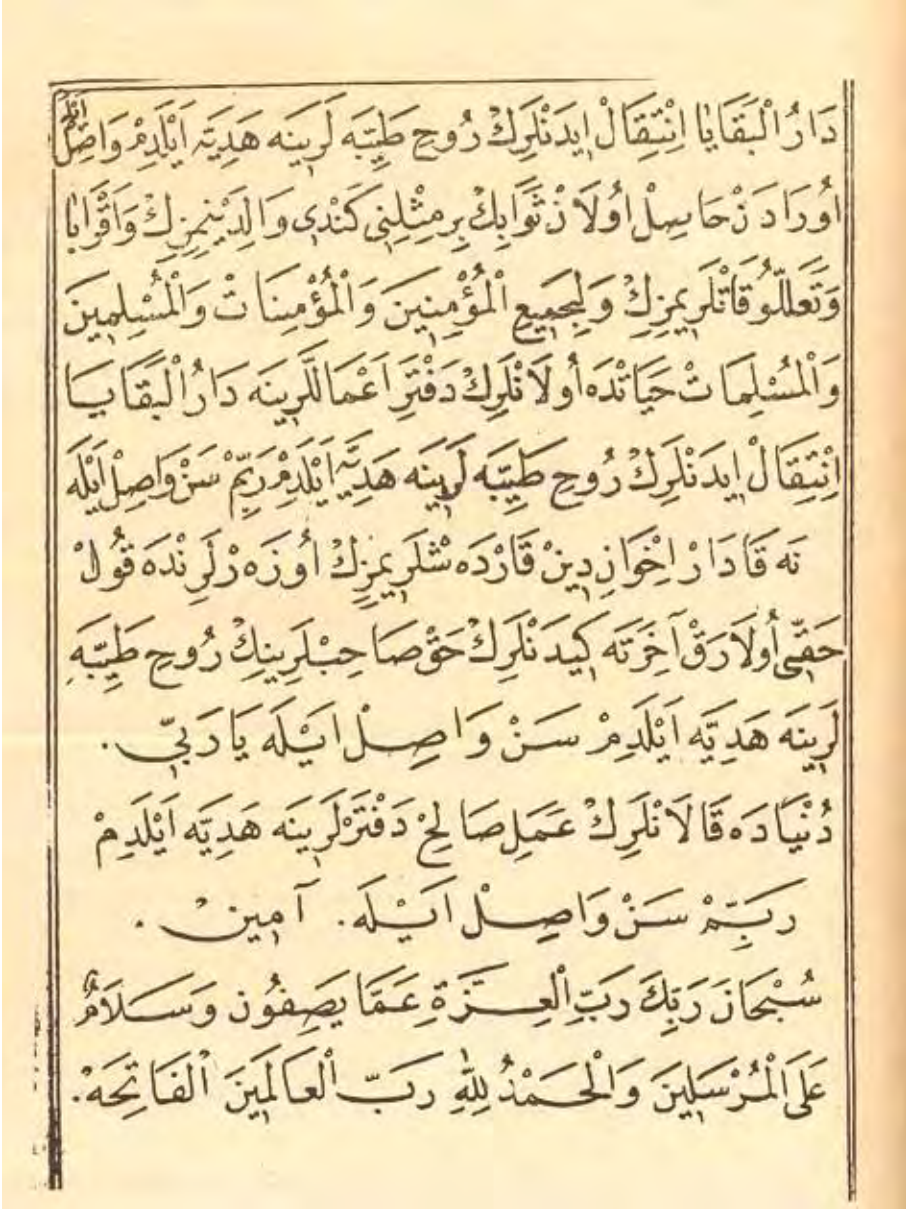 دَارُ الْبَقَايَا اِنْتِقَالْ اِيدَنْلَرِكْ رُوحِ طَيِّبَه لَرِينَه هَدِيَّه اَيْلَدِمْ وَاصِلْ اَيْلَه
اَوُرَادَنْ حَاسِلْ اوُلَانْ ثَوَابِكْ بِرمِثْلِنِي كَنْدِي وَالِدَيْنِمِزِكْ وَاَقْرَابَا
وَتَعَلُّوقَاتْلَرِيمِزِكْ وَلِجَمِيعِ الْمُؤْمِنِينَ وَالْمُؤْمِنَاتْ وَالْمُسْلِمِينَ
وَالْمُسْلِمَاتْ حَيَاتْدَه اُولَانْلَرِكْ دَفْتَرِ اَعْمَالَّرِينَه دَارُ الْبَقَايَا
اِنْتِقَالْ اِيدَنْلَرِكْ رُوحِ طَيِّبَه لَرِينَه هَدِيَّه اَيْلَدِمْ رَبِّمْ سَنْ وَاصِلْ اَيْلَه
نَه قَادَارْ اِخْوَانِ دِينْ قَارْدَه شْلَرِيمِزِكْ اُوزَه رْلَرِنْدَه قُولْ
حَقِّى اُولَارَقْ آخِرَتَه كِيدَنْلَرِكْ حَقْ صَاحِبْلَرِينِكْ رُوحِ طَيِّبَه
لَرِينَه هَدِيَّه اَيْلَدِمْ سَنْ وَاصِلْ اَيْلَه يَارَبِّى .
دُنْيَادَه قَالَانْلَرِكْ عَمَلِ صَالِحْ دَفْتَرْلَرِينَه هَدِيَّه اَيْلَدِمْ
رَبِّمْ سَنْ وَاصِلْ اَيْلَه . آمِينْ .
سُبْحَانَ رَبِّكَ رَبِّ الْعِزَّةِ عَمَّا يَصِفُونَ وَسَلَامٌ
عَلَى الْمُرْسَلِينَ وَالْحَمْدُ لِلّٰهِ رَبِّ الْعَالَمِينَ اَلْفَاتِحَهْ .